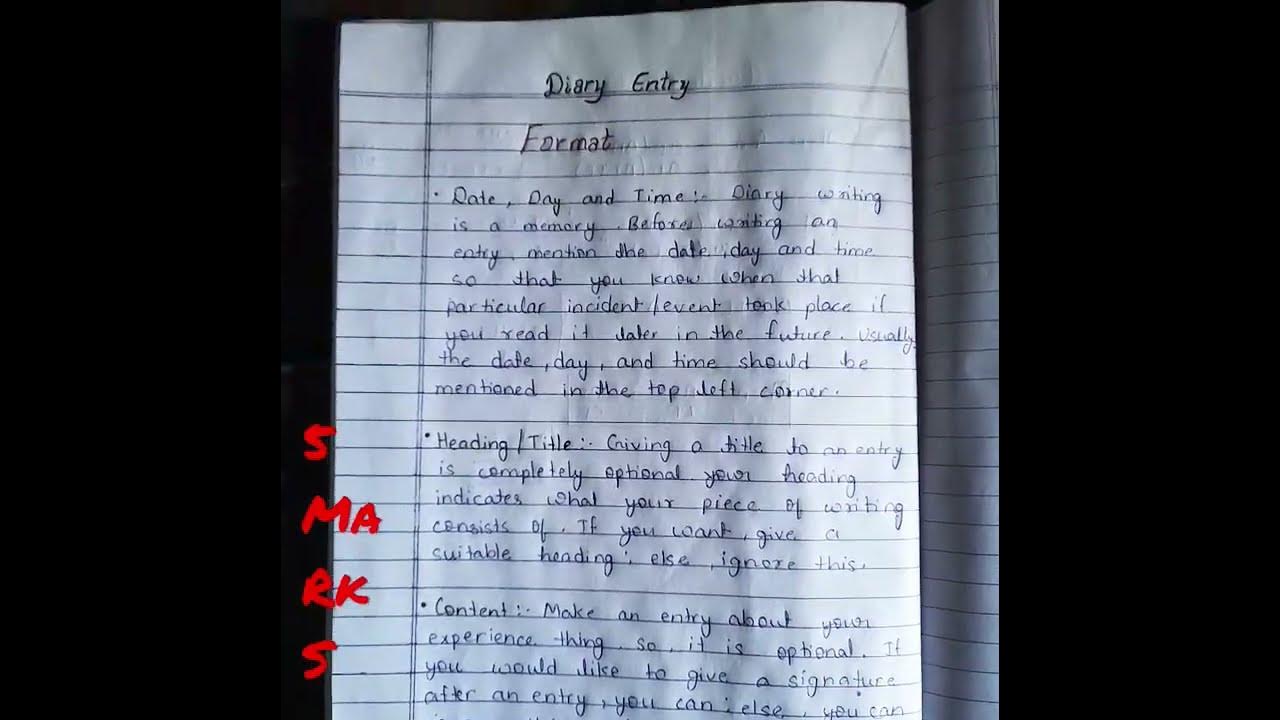 Diary Entry
Format
• Date, Day and Time:- Diary writing
is a memory. Before writing an
entry, mention the date, day and time
so that you know when that
particular incident/event took place if
you read it later in the future. Usually,
the date, day, and time should be
mentioned in the top left corner.
• Heading/Title:- Giving a title to an entry
is completely optional your heading
indicates what your piece of writing
consists of. If you want, give a
suitable heading; else, ignore this.
• Content:- Make an entry about your
experience thing, so, it is optional. If
you would like to give a signature
after an entry, you can; else, you can
5
MA
RK
S